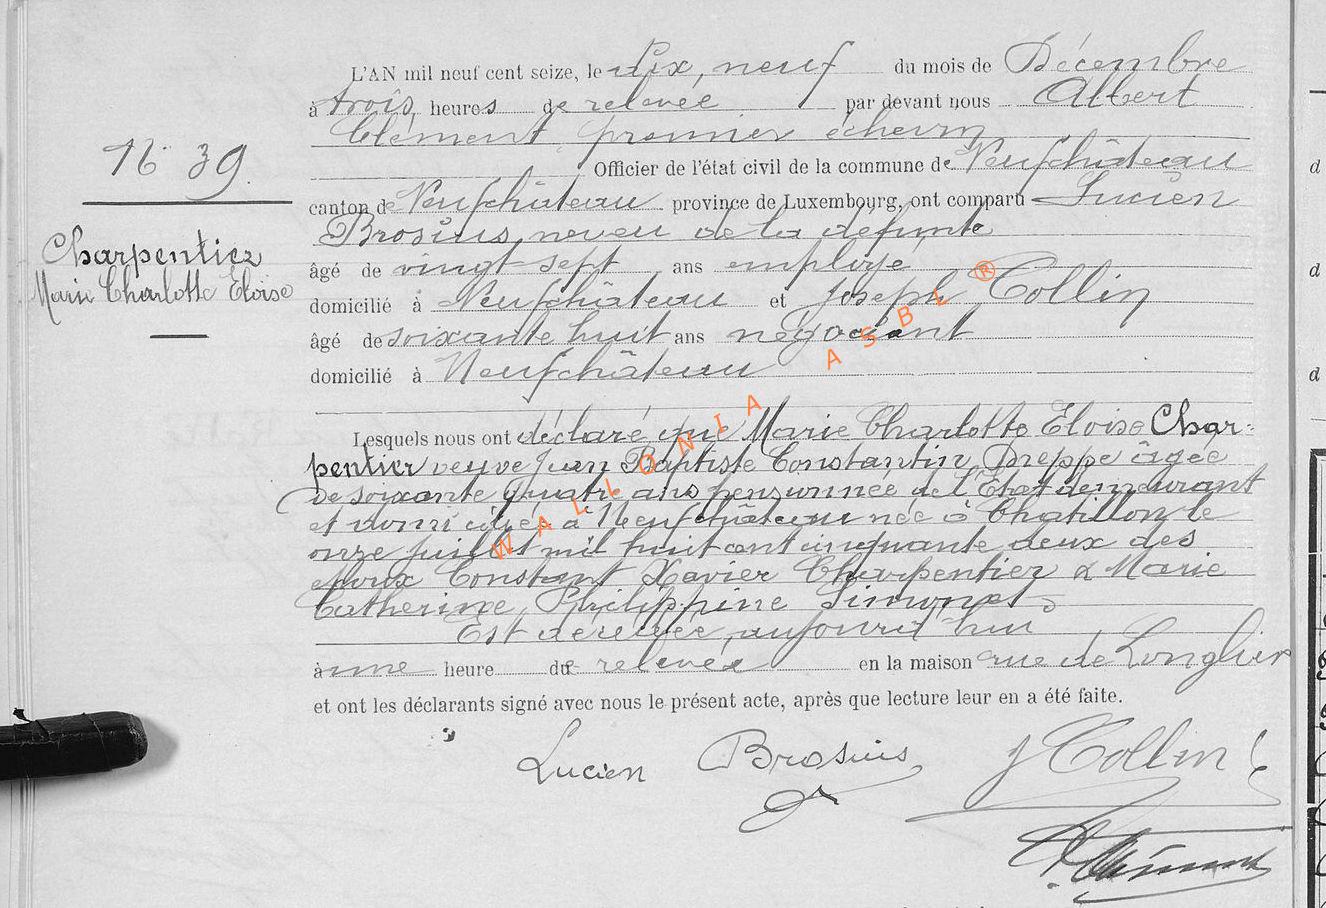 L'AN mil neuf cent seize, le dix, neuf du mois de Décembre
à trois heures de relevée par devant nous Albert
Clément, premier échevin
Officier de l'état civil de la commune de Neufchâteau
N° 39.
canton de Neufchâteau province de Luxembourg, ont comparu Lucien
Brosius, neveu de la défunte
Charpentier
Marie Charlotte Eloïse
âgé de vingt-sept ans employé
domicilié à Neufchâteau et Joseph Collin
âgé de soixante huit ans négociant
domicilié à Neufchâteau
Lesquels nous ont déclaré que Marie Charlotte Eloïse Char-
pentier veuve Jean Baptiste Constantin Dreppe âgée
de soixante quatre ans pensionnée de l'Etat demeurant
et domiciliée à Neufchâteau née à Chatillon le
onze juillet mil huit cent cinquante deux des
époux Constant Xavier Charpentier & Marie
Catherine, Philippine Simonet
Est décédée, aujourd'hui
à une heure de relevée en la maison rue de Longlier
et ont les déclarants signé avec nous le présent acte, après que lecture leur en a été faite.
Lucien Brosius J Collin
A Clément
WALLONIA ASBL ®
d
d
d